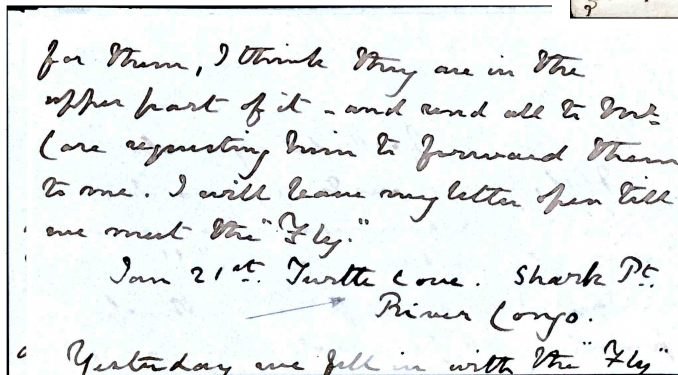 for them, I think they are in the
upper part of it - and send all to Mr.
Care requesting him to forward them
to me. I will leave my letter open till
we meet the "Fly."
Jan 21st. Turtle Cove. Shark Pt.
River Congo.
Yesterday we fell in with the "Fly"